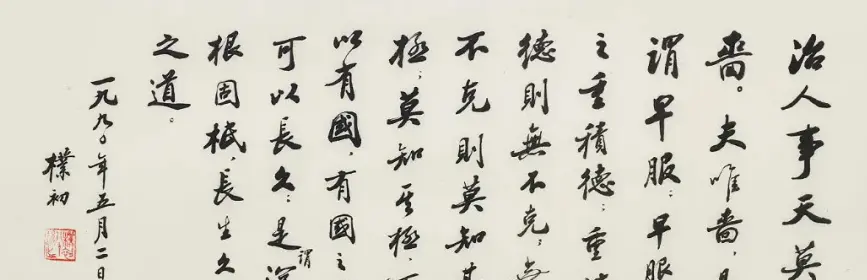 治人事天莫
嗇。夫唯嗇，
謂早服；早服
之重積德；重
德則無不克；
不克則莫知
極；莫知其極，
以有國，有國之
可以長久；是謂
根固柢，長生久
之道。
一九九〇年五月二日
樸初